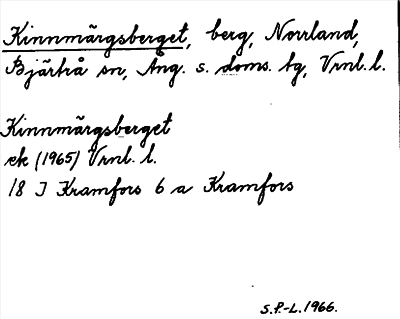 Kinnmärgsberget, berg, Norrland,
Bjärtrå sn, Ång. s. doms. tg, Vrnl. l.
Kinnmärgsberget
ek (1965) Vrnl. l.
18 J Kramfors 6 a Kramfors
S.P.-L. 1966.